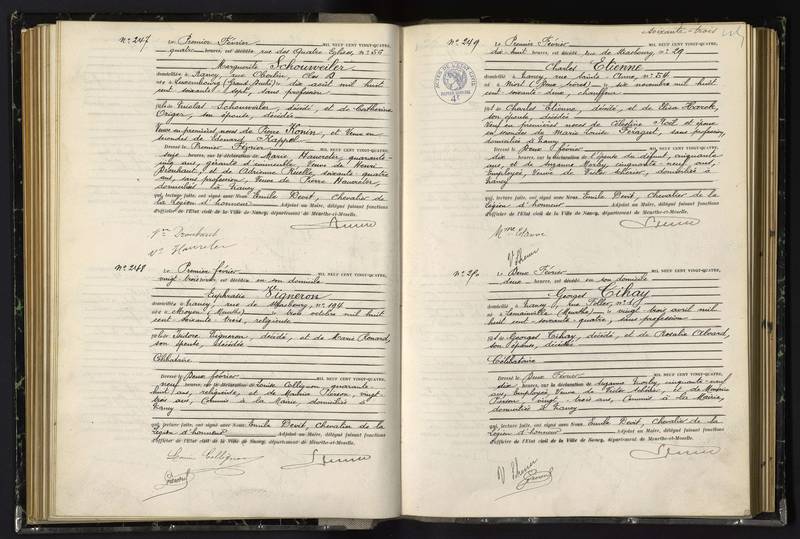 N° 247 Le Premier Février MIL NEUF CENT VINGT-QUATRE,
quatre heures, est décédée rue des Quatre Eglises, n° 56
Marguerite Schouweiler
domiciliée à Nancy, rue
née à Luxembourg (Grand Duché) le dix août mil huit
cent soixante sept, sans profession
fille de Nicolas Schouweiler, décédé, et de Catherine
son épouse, décédée
Veuve en premières noces de Pierre Konin, et Veuve en
secondes de Edouard Kappel
Dressé le Premier Février MIL NEUF CENT VINGT-QUATRE,
heures, sur la déclaration de Marie Hawreler, quarante
cinq ans, gérante d'immeuble, Veuve de Henri
et de Adrienne Ruelle, soixante quatre
ans, sans profession, Veuve de Pierre Hawreler,
domiciliées à Nancy
qui, lecture faite, ont signé avec Nous Emile Devit, Chevalier de
la Légion d'honneur Adjoint au Maire, délégué faisant fonctions
d'officier de l'Etat civil de la Ville de Nancy, département de Meurthe-et-Moselle.
N° 248 Le Premier février MIL NEUF CENT VINGT-QUATRE,
vingt trois heures, est décédée en son domicile
Euphrasie Vigneron
domiciliée à Nancy, rue de Strasbourg, n° 194
née à (Meurthe) le trois octobre mil huit
cent soixante trois, religieuse
fille de Isidore Vigneron, décédé, et de Marie Renard,
son épouse, décédée
Célibataire
Dressé le Deux février MIL NEUF CENT VINGT-QUATRE,
neuf heures, sur la déclaration de Louise Collignon, quarante
huit ans, religieuse, et de Maurice Pierson, vingt
trois ans, Commis à la Mairie, domiciliés à
Nancy
qui, lecture faite, ont signé avec Nous Emile Devit, Chevalier de la
Légion d'honneur Adjoint au Maire, délégué faisant fonctions
d'officier de l'Etat civil de la Ville de Nancy, département de Meurthe-et-Moselle.
Louise Collignon
soixante-trois
N° 249 Le Premier Février MIL NEUF CENT VINGT-QUATRE,
dix huit heures, est décédé rue de Strasbourg n° 29
Charles Etienne
domicilié à Nancy, rue Sainte Anne, n° 54
né à Niort (Deux Sèvres) le dix novembre mil huit
cent soixante deux, chauffeur
fils de Charles Etienne, décédé, et de
son épouse, décédée
Veuf en premières noces de Célestine et époux
en secondes de Marie Louise sans profession,
domiciliée à Nancy
Dressé le Deux février MIL NEUF CENT VINGT-QUATRE,
dix heures, sur la déclaration de l'épouse du défunt, cinquante
ans, et de Suzanne cinquante neuf ans,
Employée, Veuve de Victor domiciliées à
Nancy
qui, lecture faite, ont signé avec Nous Emile Devit, Chevalier de la
Légion d'honneur Adjoint au Maire, délégué faisant fonctions
d'officier de l'Etat civil de la Ville de Nancy, département de Meurthe-et-Moselle.
Mme Etienne
N° 250 Le Deux Février MIL NEUF CENT VINGT-QUATRE,
deux heures, est décédé en son domicile
Georges Cihay
domicilié à Nancy, rue
né à (Meurthe) le vingt trois avril mil
huit cent soixante quatre, sans profession
fils de Georges Cihay, décédé, et de Rosalie
son épouse, décédée
Célibataire
Dressé le Deux Février MIL NEUF CENT VINGT-QUATRE,
dix heures, sur la déclaration de Suzanne cinquante neuf
ans, Employée, Veuve de Victor et de Maurice
Pierson, vingt trois ans, Commis à la Mairie,
domiciliés à Nancy
qui, lecture faite, ont signé avec Nous Emile Devit, Chevalier de la
Légion d'honneur Adjoint au Maire, délégué faisant fonctions
d'officier de l'Etat civil de la Ville de Nancy, département de Meurthe-et-Moselle.